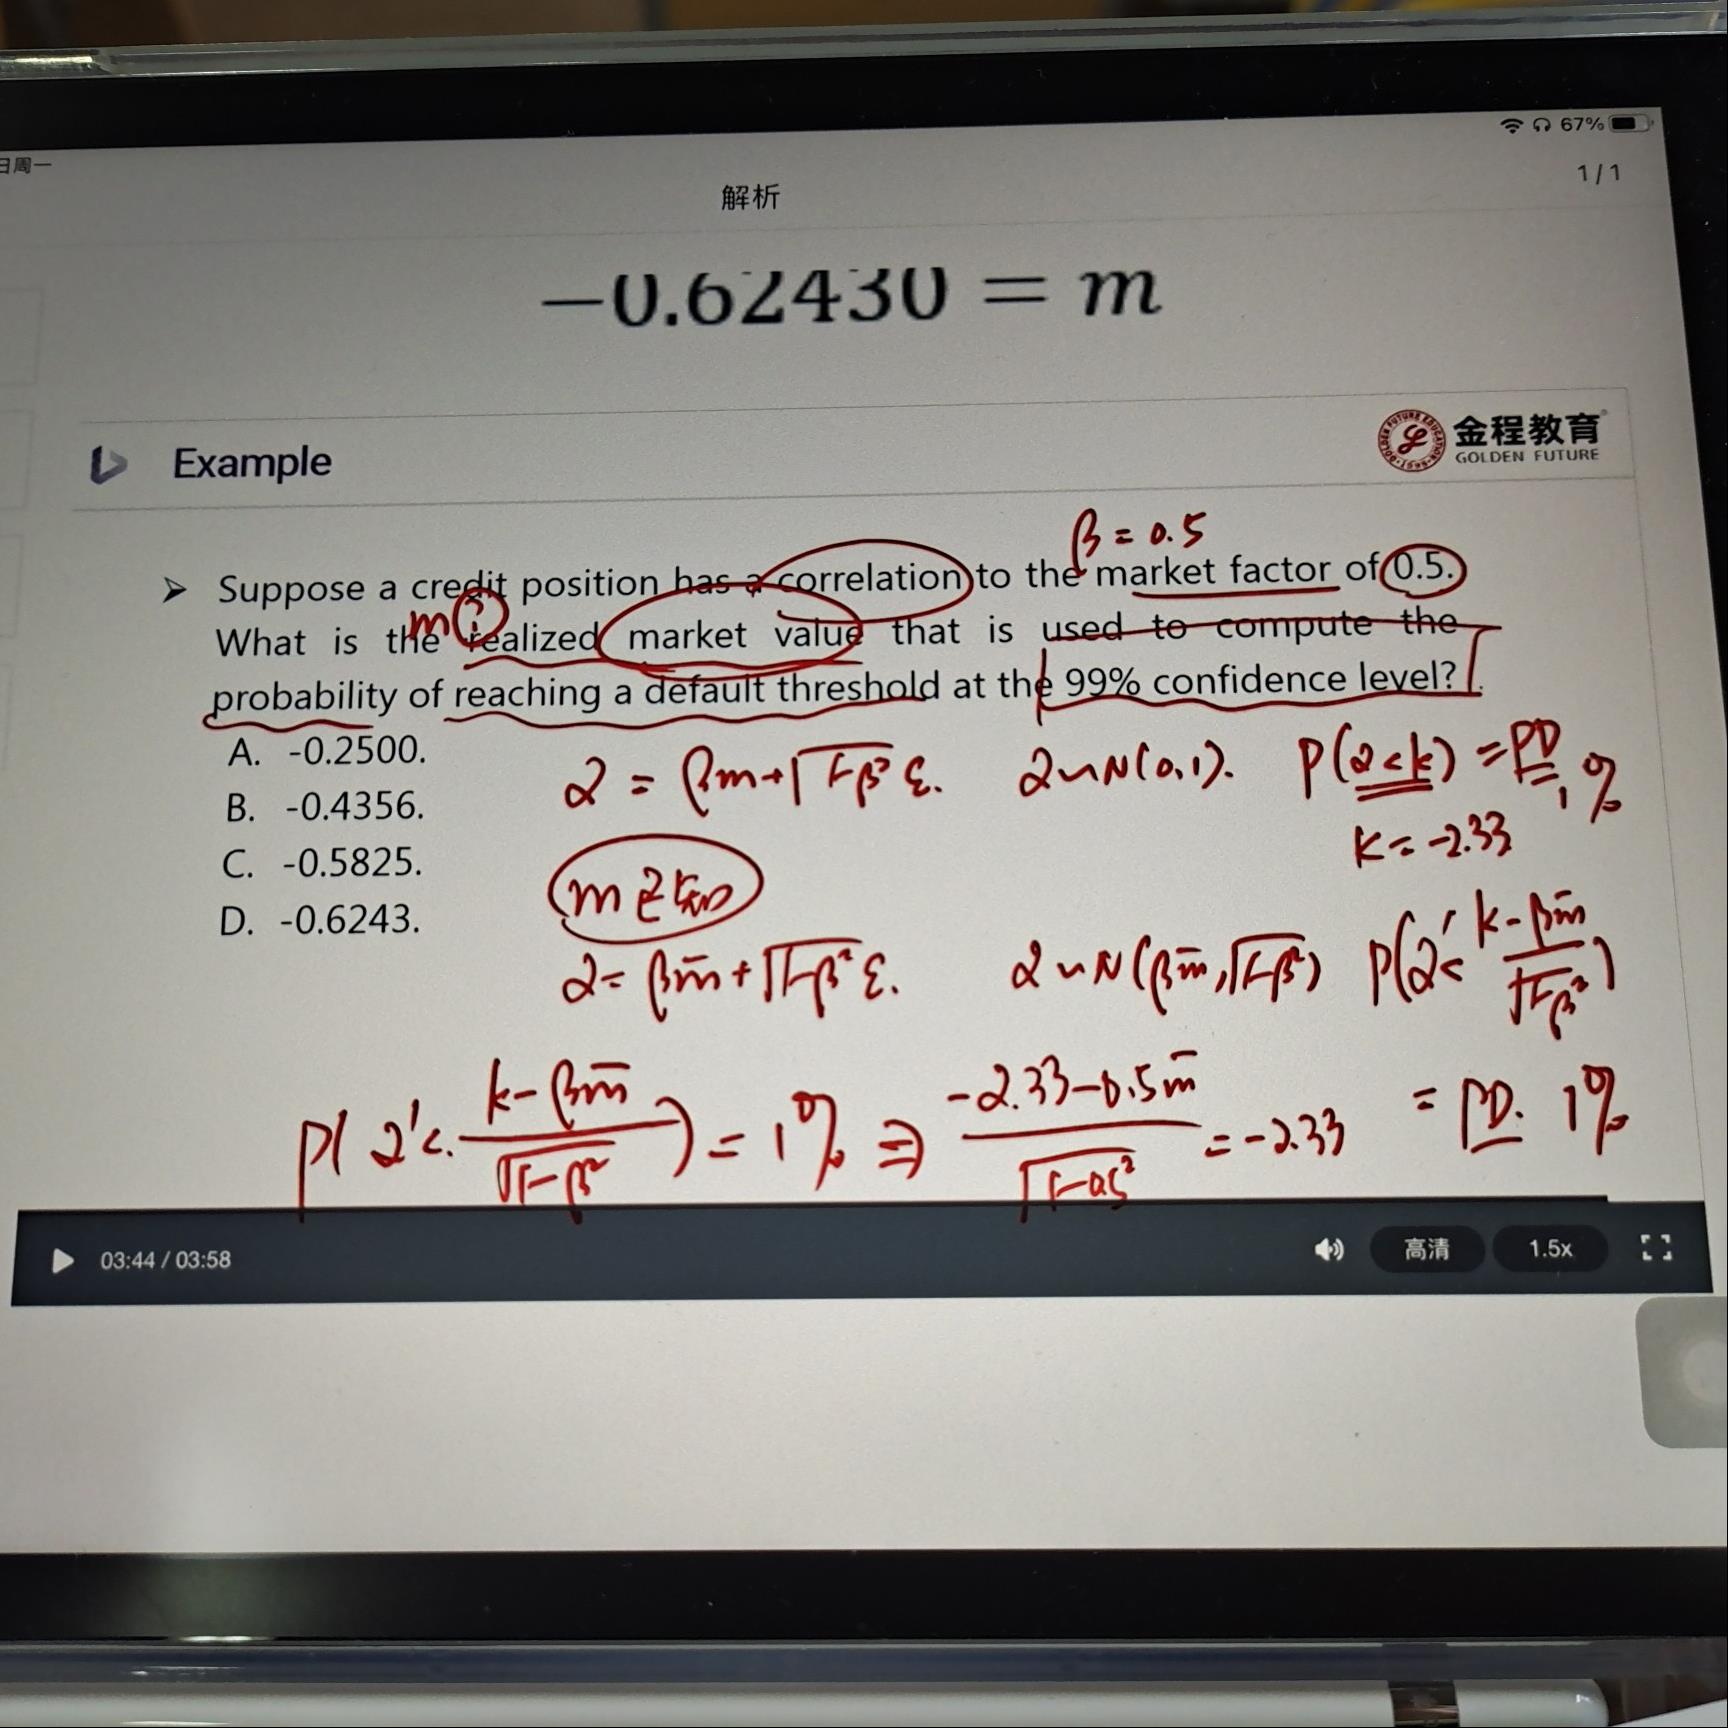 日周一
67%
解析
1/1
−0.62430 = m
Example
金程教育
GOLDEN FUTURE
β = 0.5
➤ Suppose a credit position has a correlation to the market factor of 0.5.
m ?
What is the realized market value that is used to compute the
probability of reaching a default threshold at the 99% confidence level?
A. -0.2500.
B. -0.4356.
C. -0.5825.
D. -0.6243.
α = βm+√1-β² ε. α~N(0,1). P(α<k) = PD 1%
k = -2.33
m
α = βm̄ + √1-β² ε. α~N(βm̄, √1-β²) P(α'< k-βm̄ / √1-β²)
P( α'< k-βm̄ / √1-β² ) = 1% ⇒ -2.33-0.5m̄ / √1-0.5² = -2.33 = PD. 1%
03:44 / 03:58
高清
1.5x